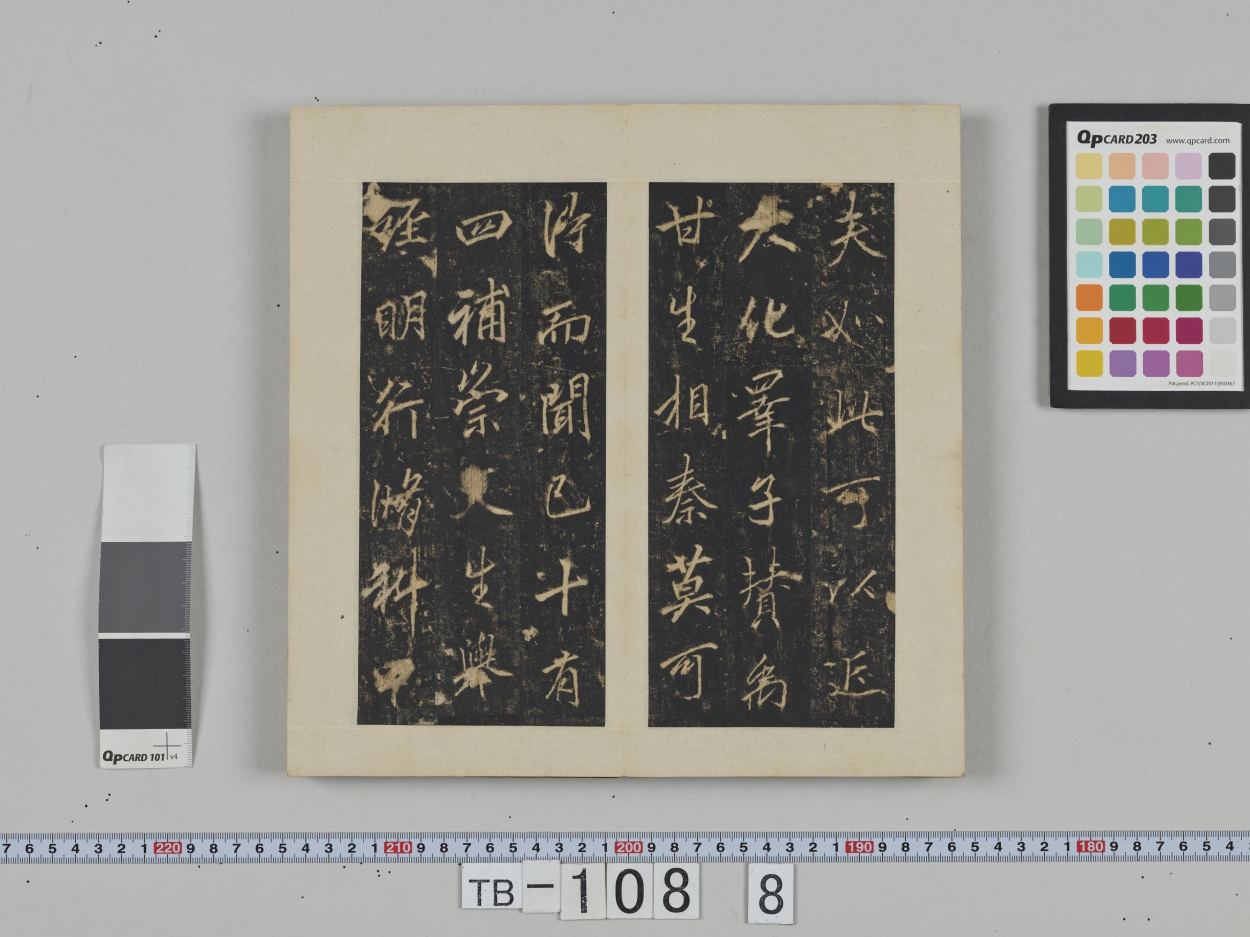 夫如此可以近
大化睪子贊禹
甘生相秦莫可
得而聞已十有
四補崇文生舉
經明行脩科甲
QPCARD 203 www.qpcard.com
Pat.pend. PCT/SE2011/050367
QPCARD 101 v4
7 6 5 4 3 2 1 220 9 8 7 6 5 4 3 2 1 210 9 8 7 6 5 4 3 2 1 200 9 8 7 6 5 4 3 2 1 190 9 8 7 6 5 4 3 2 1 180 9 8 7 6 5 4
TB-108 8